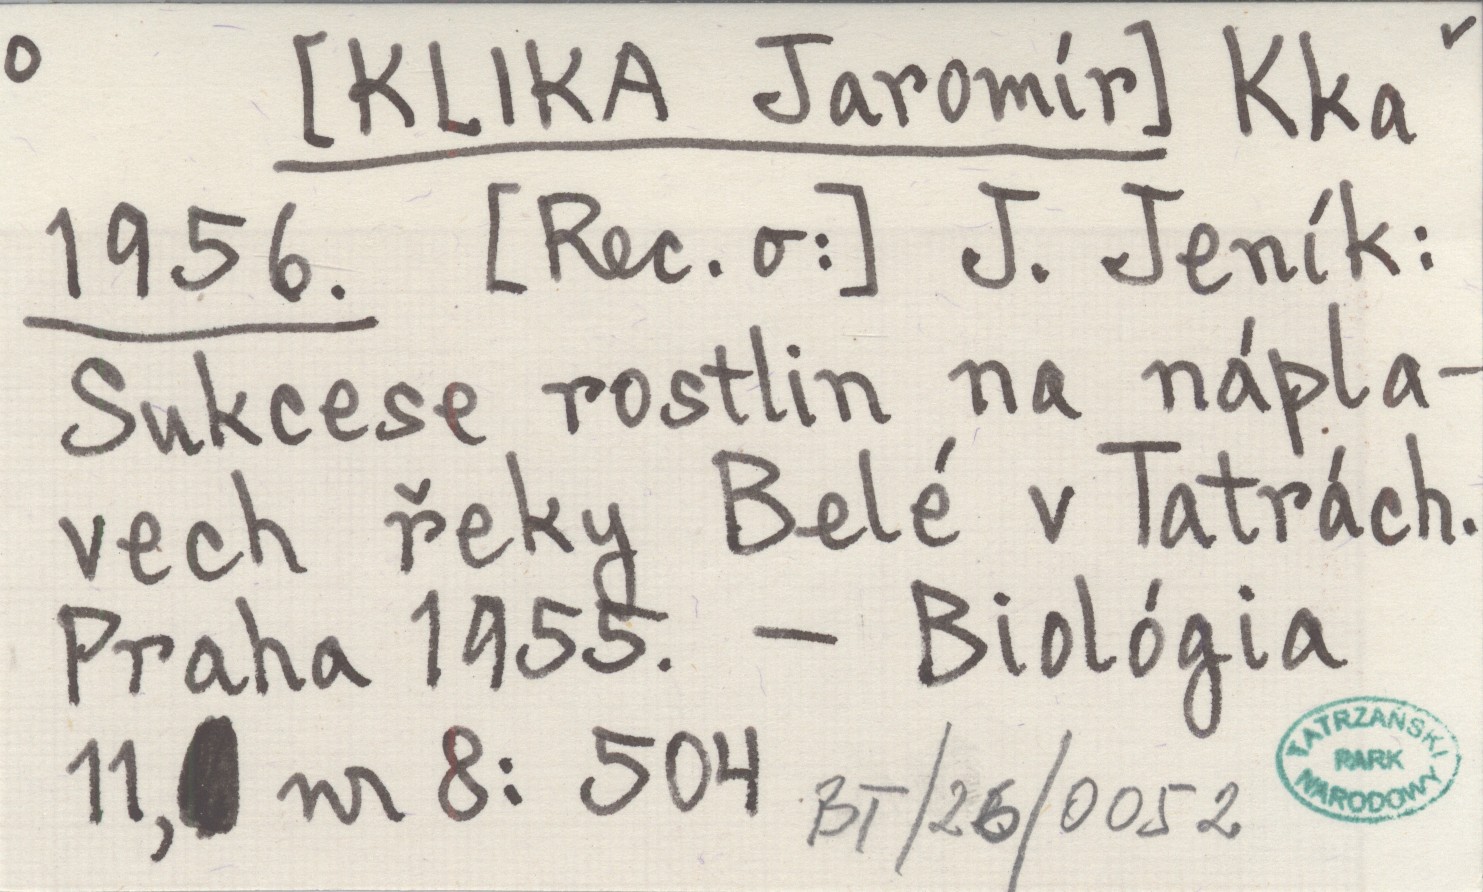 o [KLIKA Jaromír] Kka ✓
1956. [Rec. o:] J. Jeník:
Sukcese rostlin na nápla-
vech řeky Belé v Tatrách.
Praha 1955. — Biológia
11, nr 8: 504
BT/26/0052
TATRZAŃSKI
PARK
NARODOWY